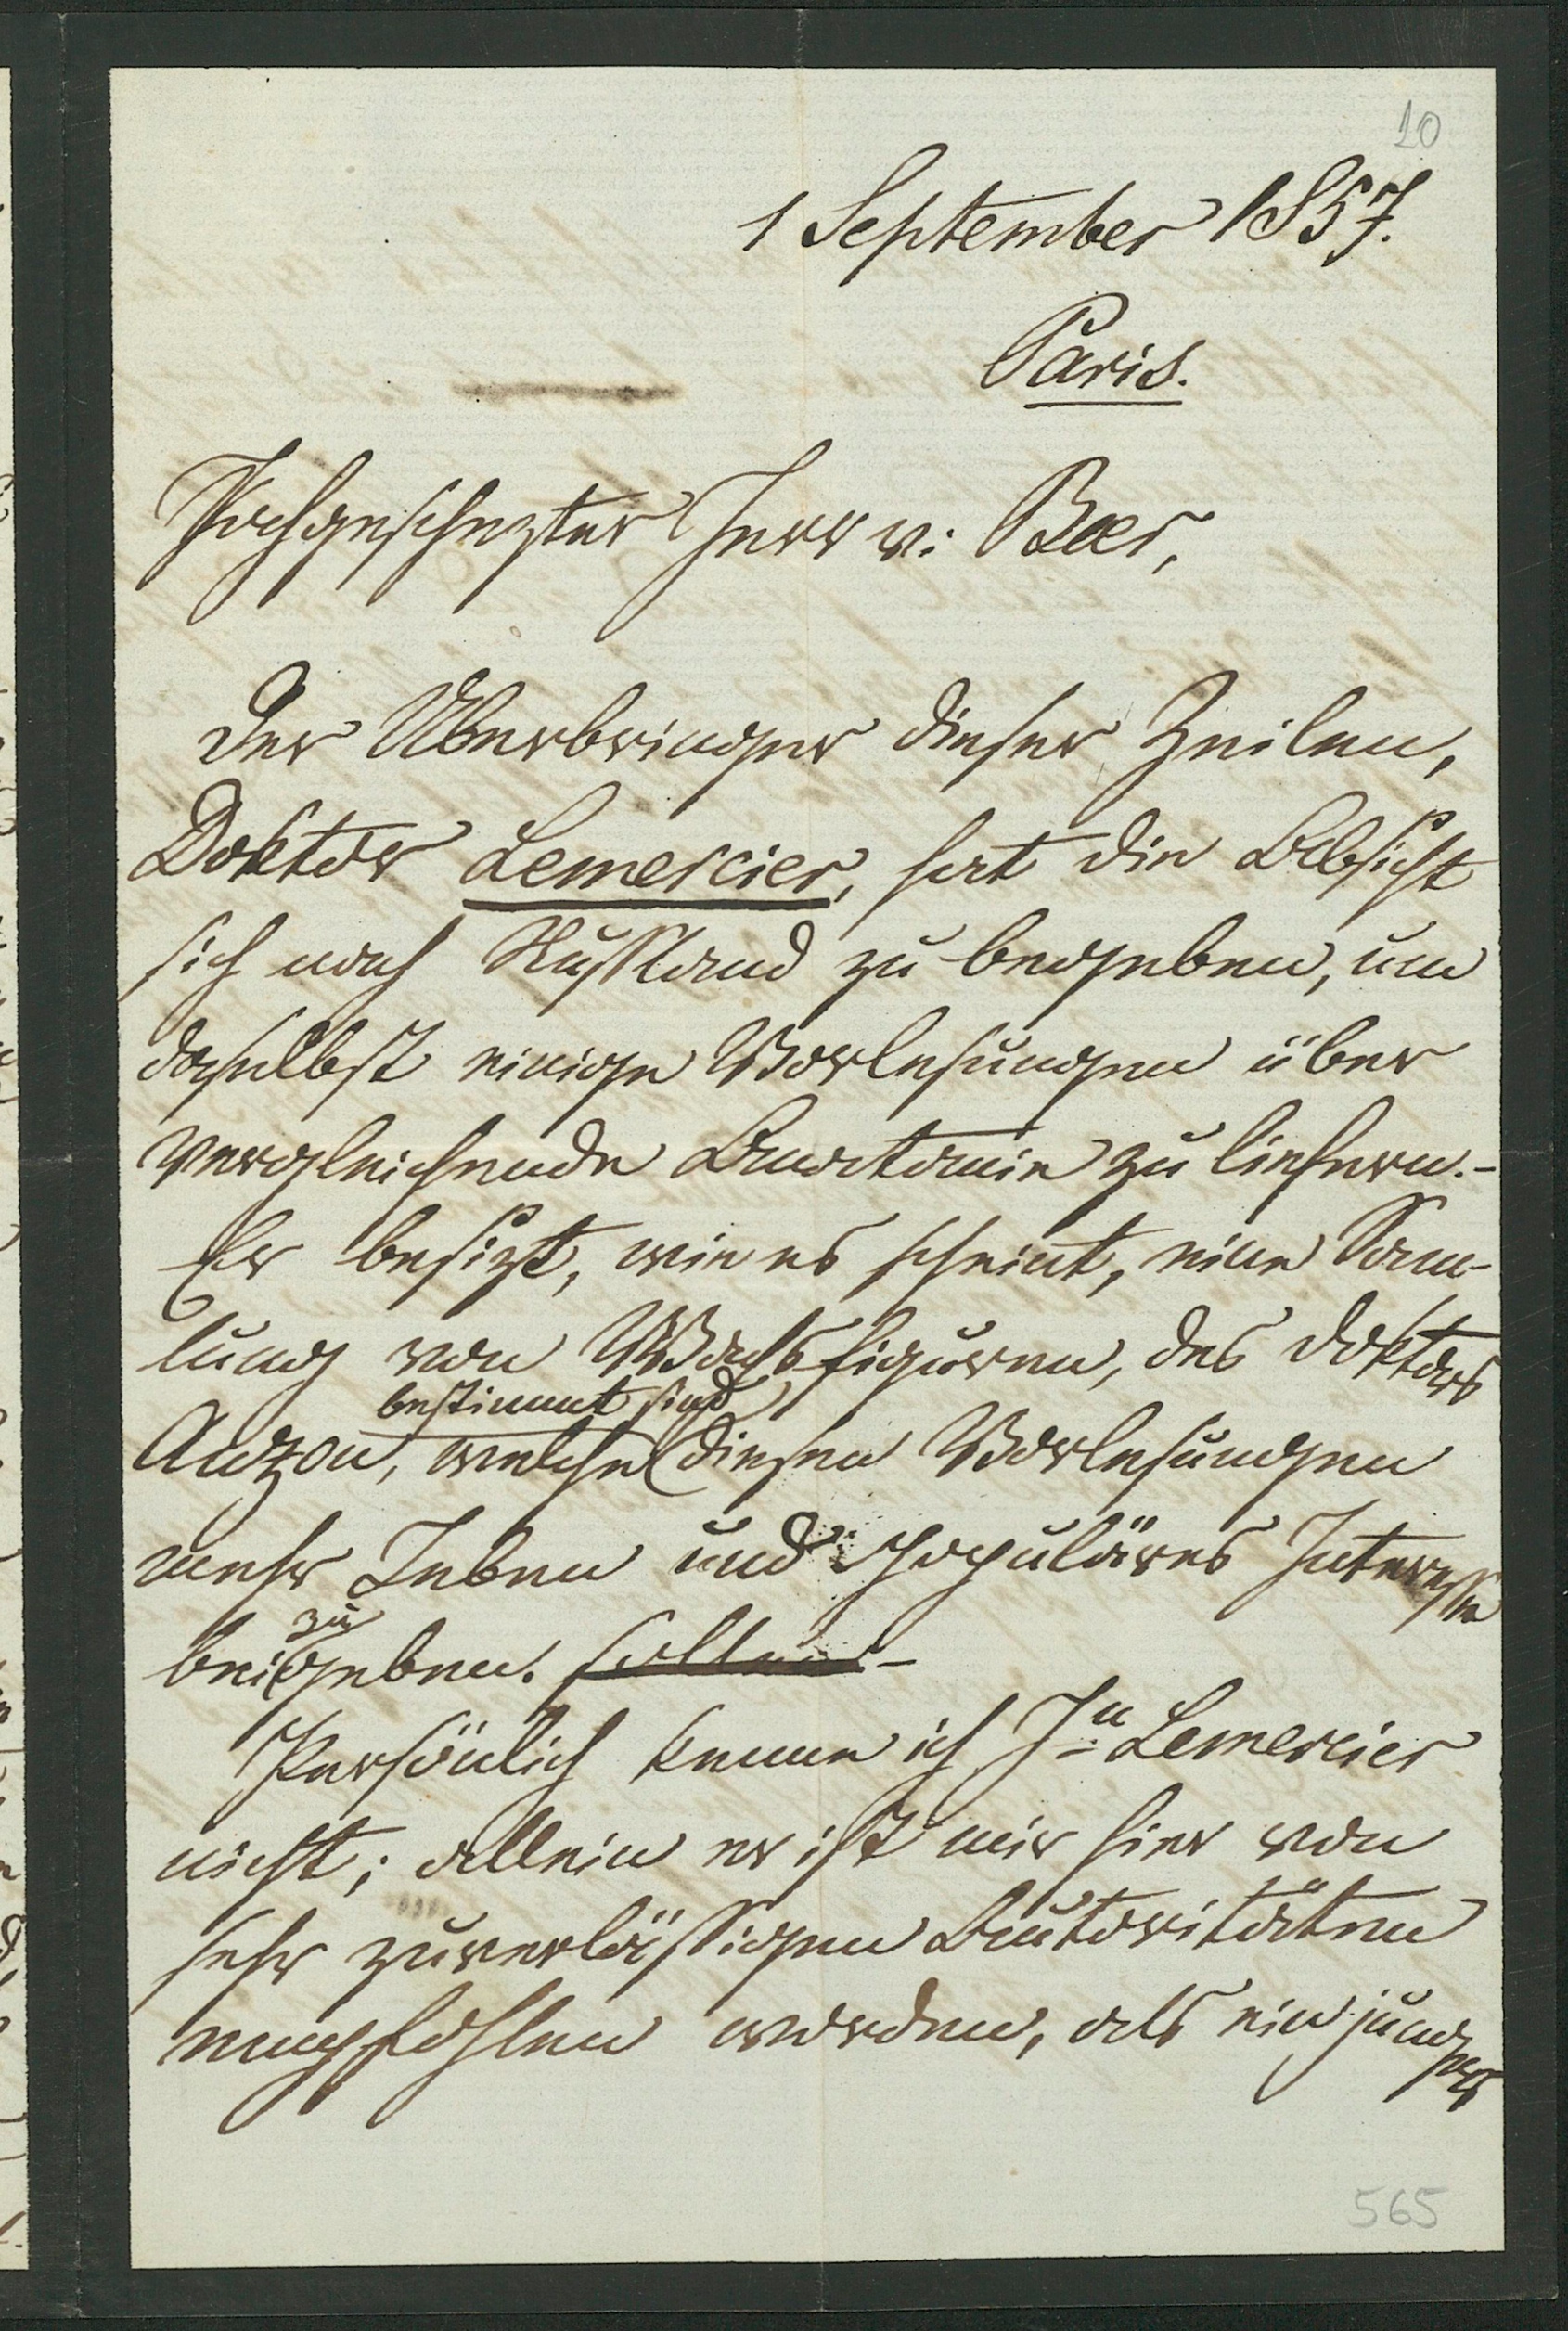 10
1 September 1857.
Paris.
Hochgeschezter Herr v: Baer,
Der Überbringer dieser Zeilen,
Doktor Lemercier, hat die Absicht
sich nach Rußland zu begeben, um
daselbst einige Vorlesungen über
vergleichende Anatomie zu liefern.-
Er besizt, wie es scheint, eine Sam-
lung von Wachsfiguren, des Doktors
bestimmt sind
Auzou, welche diesen Vorlesungen
mehr Leben und populäres Interesse
zu
beigeben. sollen-
Persönlich kenne ich Hn Lemercier
nicht; allein er ist mir hier von
sehr zuverläßigen Autoritäten
empfohlen worden, als ein junger
565